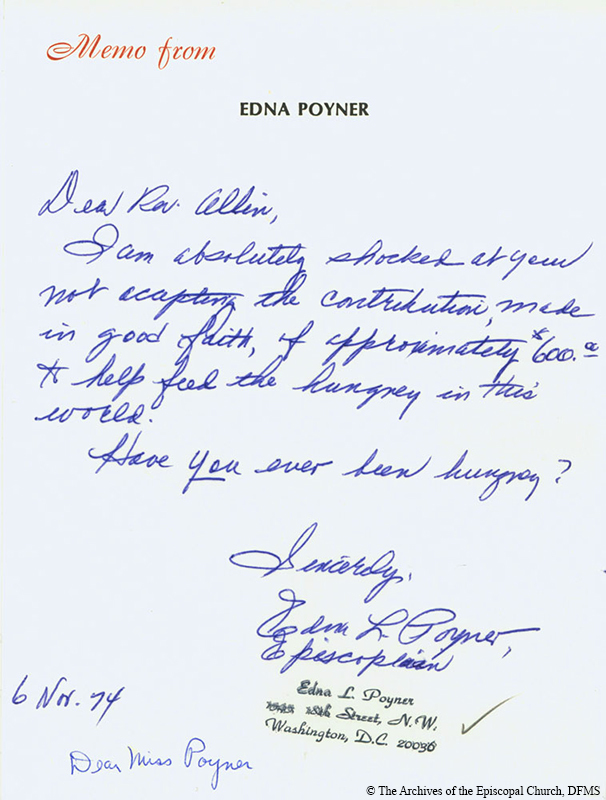 Memo from
EDNA POYNER
Dear Rev. Allin,
I am absolutely shocked at your
not acapting the contribution, made
in good faith, of approximately $600.00
to help feed the hungrey in this
world.
Have you ever been hungrey?
Sincerdy,
Edna L. Poyner,
Episcoplian
6 Nov. 74
Edna L. Poyner
18th Street, N.W.
Washington, D.C. 20036
Dear Miss Poyner
© The Archives of the Episcopal Church, DFMS